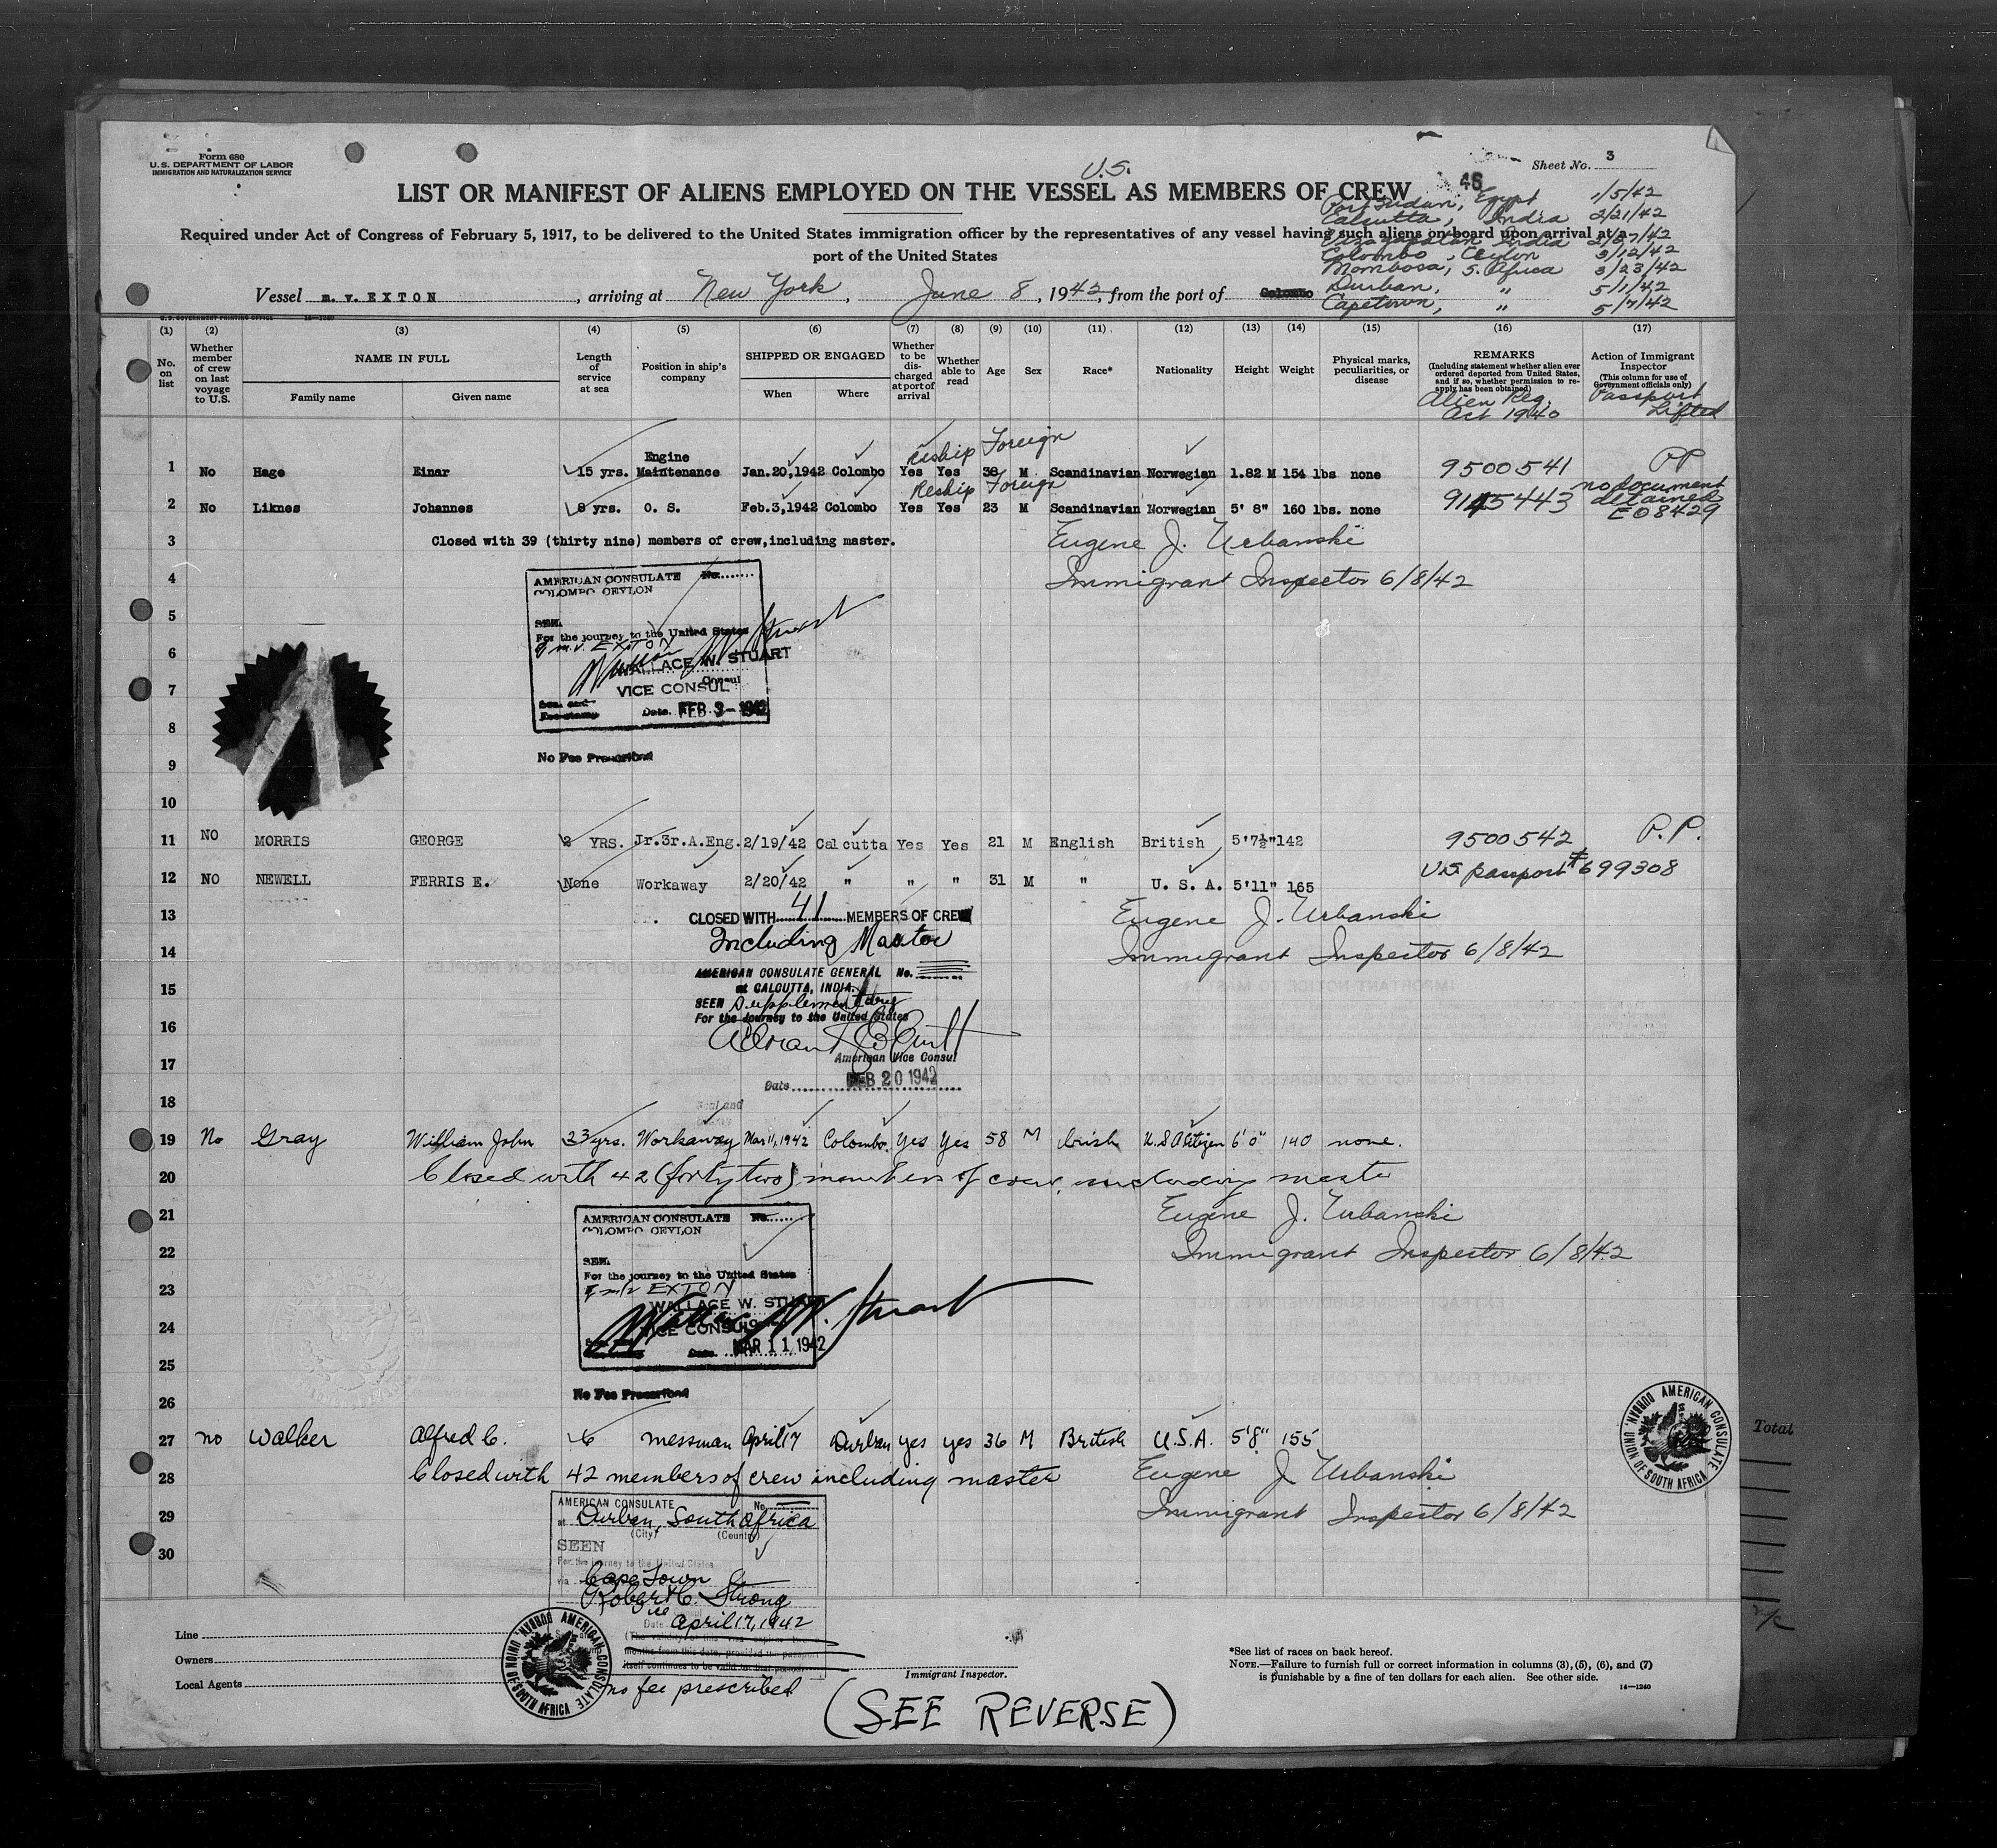 Form 680
U.S. DEPARTMENT OF LABOR
IMMIGRATION AND NATURALIZATION SERVICE
Sheet No. 3
U.S.
46
LIST OR MANIFEST OF ALIENS EMPLOYED ON THE VESSEL AS MEMBERS OF CREW
Port Sudan, Egypt 1/5/42
Calcutta, India 2/21/42
Required under Act of Congress of February 5, 1917, to be delivered to the United States immigration officer by the representatives of any vessel having such aliens on board upon arrival at a
port of the United States
India 2/27/42
Colombo, Ceylon 3/12/42
Mombosa, S. Africa 3/23/42
Durban, " 5/1/42
Capetown, " 5/7/42
Vessel m. v. EXTON, arriving at New York, June 8, 1942, from the port of Colombo
U.S. GOVERNMENT PRINTING OFFICE 14-1240
(1) (2) (3) (4) (5) (6) (7) (8) (9) (10) (11) (12) (13) (14) (15) (16) (17)
No. on list
Whether member of crew on last voyage to U.S.
NAME IN FULL
Family name
Given name
Length of service at sea
Position in ship's company
SHIPPED OR ENGAGED
When
Where
Whether to be discharged at port of arrival
Whether able to read
Age
Sex
Race*
Nationality
Height
Weight
Physical marks, peculiarities, or disease
REMARKS
(Including statement whether alien ever ordered deported from United States, and if so, whether permission to re-apply has been obtained)
Alien Reg. Act 1940
Action of Immigrant Inspector
(This column for use of Government officials only)
Passport Lifted
Reship Foreign
1 No Hage Einar 15 yrs. Engine Maintenance Jan.20,1942 Colombo Yes Yes 38 M Scandinavian Norwegian 1.82 M 154 lbs none 9500541 PP
Reship Foreign
2 No Liknes Johannes 8 yrs. O. S. Feb.3,1942 Colombo Yes Yes 23 M Scandinavian Norwegian 5' 8" 160 lbs. none 9145443 no document detained EO 8429
3 Closed with 39 (thirty nine) members of crew,including master. Eugene J. Urbanski
4 Immigrant Inspector 6/8/42
AMERICAN CONSULATE No.
COLOMBO, CEYLON
5
SEEN
For the journey to the United States
m.v. EXTON
6
Wallace W Stuart
WALLACE W. STUART
7
VICE CONSUL
Consul
Date FEB 3- 1942
8
No Fee Prescribed
9
10
11 NO MORRIS GEORGE 2 YRS. Jr.3r.A.Eng. 2/19/42 Calcutta Yes Yes 21 M English British 5'7½" 142 9500542 P.P.
12 NO NEWELL FERRIS E. None Workaway 2/20/42 " " " 31 M " U. S. A. 5'11" 165 US passport #699308
13 CLOSED WITH 41 MEMBERS OF CREW Eugene J. Urbanski
Including Master
14 Immigrant Inspector 6/8/42
AMERICAN CONSULATE GENERAL No.
15 at CALCUTTA, INDIA.
SEEN Supplementary
16 For the journey to the United States
17 American Vice Consul
Date FEB 20 1942
18
19 No Gray William John 23 yrs. Workaway Mar 11, 1942 Colombo. Yes Yes 58 M Irish U.S Citizen 6' 0" 140 none.
20 Closed with 42 (forty two) members of crew, including master
21 Eugene J. Urbanski
AMERICAN CONSULATE No.
COLOMBO, CEYLON
22 Immigrant Inspector 6/8/42
SEEN
For the journey to the United States
23
m/v EXTON
WALLACE W. STUART
Wallace W. Stuart
24
VICE CONSUL
Date MAR 11 1942
25
No Fee Prescribed
26
27 no Walker Alfred C. 6 messman April 17 Durban yes yes 36 M British U.S.A. 5'8" 155
28 Closed with 42 members of crew including master Eugene J Urbanski
29 Immigrant Inspector 6/8/42
AMERICAN CONSULATE No.
at Durban, South Africa
(City) (Country)
30
SEEN
For the journey to the United States
via Cape Town
Robert C. Strong
Date April 17, 1942
months from this date, provided the passport
itself continues to be valid for that period
no fee prescribed
AMERICAN CONSULATE DURBAN, UNION OF SOUTH AFRICA
AMERICAN CONSULATE DURBAN, UNION OF SOUTH AFRICA
Total
Line
Owners
Local Agents
Immigrant Inspector.
*See list of races on back hereof.
NOTE.—Failure to furnish full or correct information in columns (3), (5), (6), and (7)
is punishable by a fine of ten dollars for each alien. See other side.
14—1240
(SEE REVERSE)